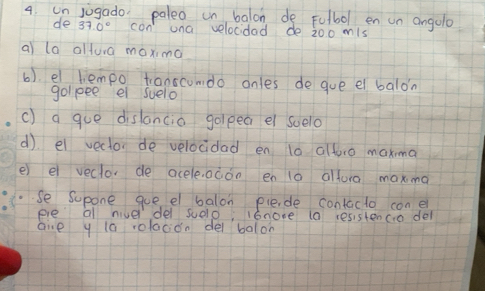 4. un jugador patea un balón de Futbol en un angulo
de 37.0° con una velocidad de 20.0 m/s
a) la altura maxima
b) el tiempo transcurrido antes de que el balón
golpee el suelo
c) a que distancia golpea el suelo
d) el vector de velocidad en la altura maxima
e) el vector de aceleración en la altura maxima
se supone que el balon pierde contacto con el
pie al nivel del suelo, ignore la resistencia del
aire y la rotación del balon